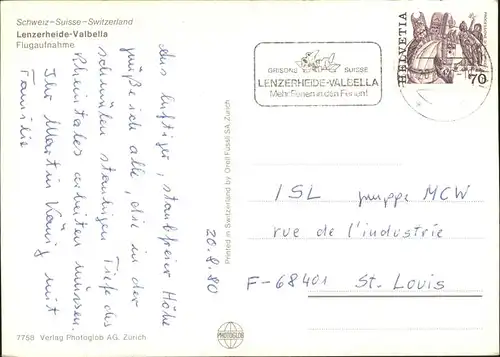 Schweiz-Suisse-Switzerland
Lenzerheide-Valbella
Flugaufnahme
Aus luftiger, staubfreier Höhe
grüße ich alle, die in der
schwülen staubigen Tiefe des
Rheintales arbeiten müssen.
Ihr Martin König mit
Familie
20.8.80
7759 Verlag Photoglob AG, Zürich
Printed in Switzerland by Orell Füssli SA, Zürich
PHOTOGLOB
GRISONS SUISSE
LENZERHEIDE-VALBELLA
Mehr Ferien in den Ferien!
HELVETIA
70
ISL gruppe MCW
rue de l'industrie
F-68401 St. Louis